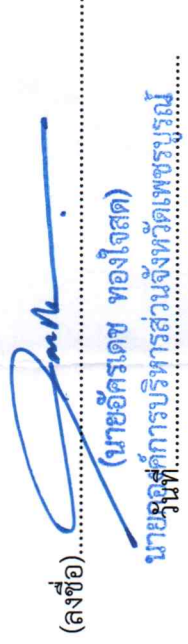 (ลงชื่อ)
(นายอัครเดช ทองใจสด)
นายกองค์การบริหารส่วนจังหวัดเพชรบูรณ์
วันที่